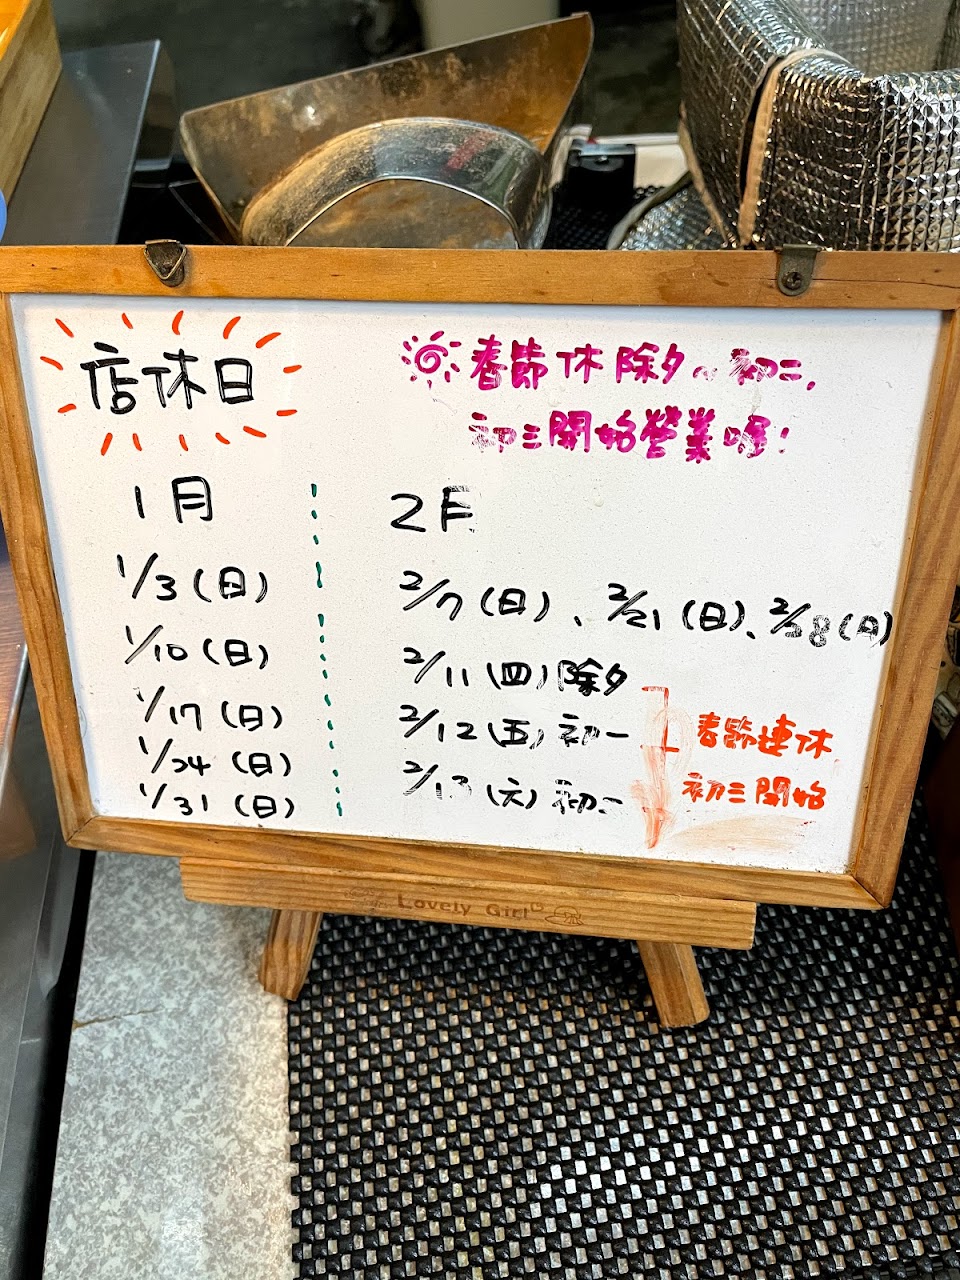 店休日
春節休除夕~初二,
初三開始營業喔!
1月
1/3(日)
1/10(日)
1/17(日)
1/24(日)
1/31(日)
2月
2/7(日)、2/21(日)、2/28(日)
2/11(四)除夕
2/12(五)初一
2/13(六)初二
春節連休
初三開始
Lovely Girl